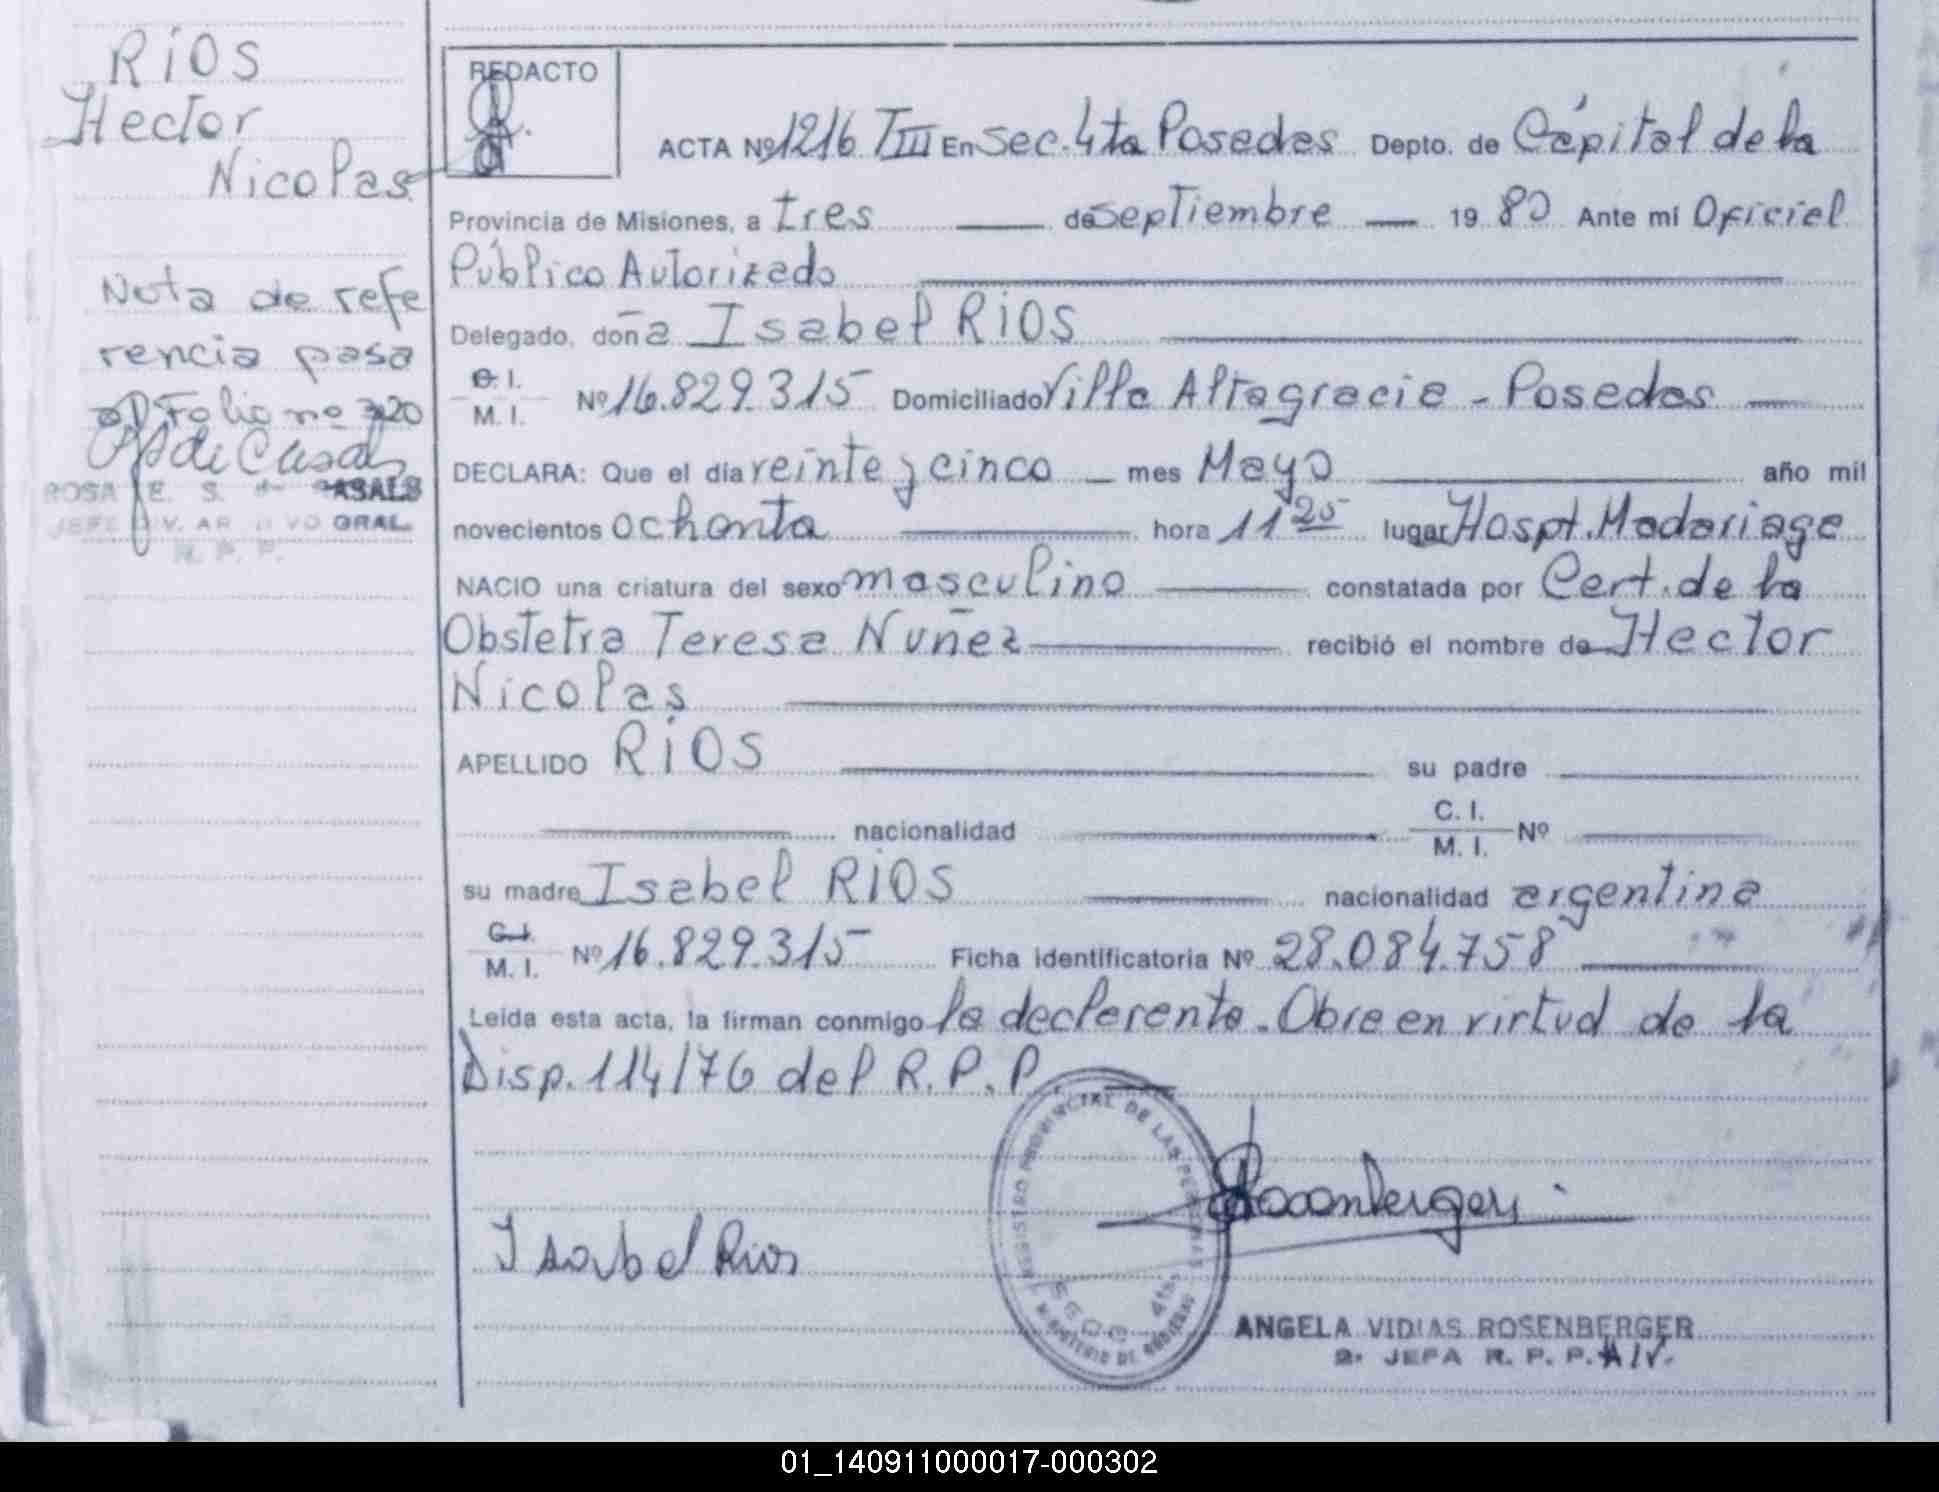 RíOS
Hector
Nicolas
Nota de refe
rencia pasa
al Folio nº 320
ROSA E. S. de CASALS
JEFE DIV. ARCHIVO GRAL.
R. P. P.
REDACTO
ACTA Nº 1216 TIII En Sec. 4ta Posadas Depto. de Cápital de la
Provincia de Misiones, a tres de septiembre 19 80 Ante mí Oficial
Público Autorizado
Delegado, doña Isabel RíOS
C. I.
M. I. Nº 16.829.315 Domiciliado Villa Altagracia - Posadas
DECLARA: Que el día veinte y cinco mes Mayo año mil
novecientos ochenta hora 11 25 lugar Hospt. Madariaga
NACIO una criatura del sexo masculino constatada por Cert. de la
Obstetra Teresa Nuñez recibió el nombre de Hector
Nicolas
APELLIDO RíOS su padre
nacionalidad C. I.
M. I. Nº
su madre Isabel RíOS nacionalidad argentina
C. I.
M. I. Nº 16.829.315 Ficha identificatoria Nº 28.084.758
Leída esta acta, la firman conmigo la declarente. Obre en virtud de la
Disp. 114/76 del R.P.P.
REGISTRO PROVINCIAL DE LAS PERSONAS
SECC. 4ta
MINISTERIO DE GOBIERNO
Isabel Rios
Rosenberger
ANGELA VIDIAS ROSENBERGER
2ª JEFA R. P. P.
01_140911000017-000302